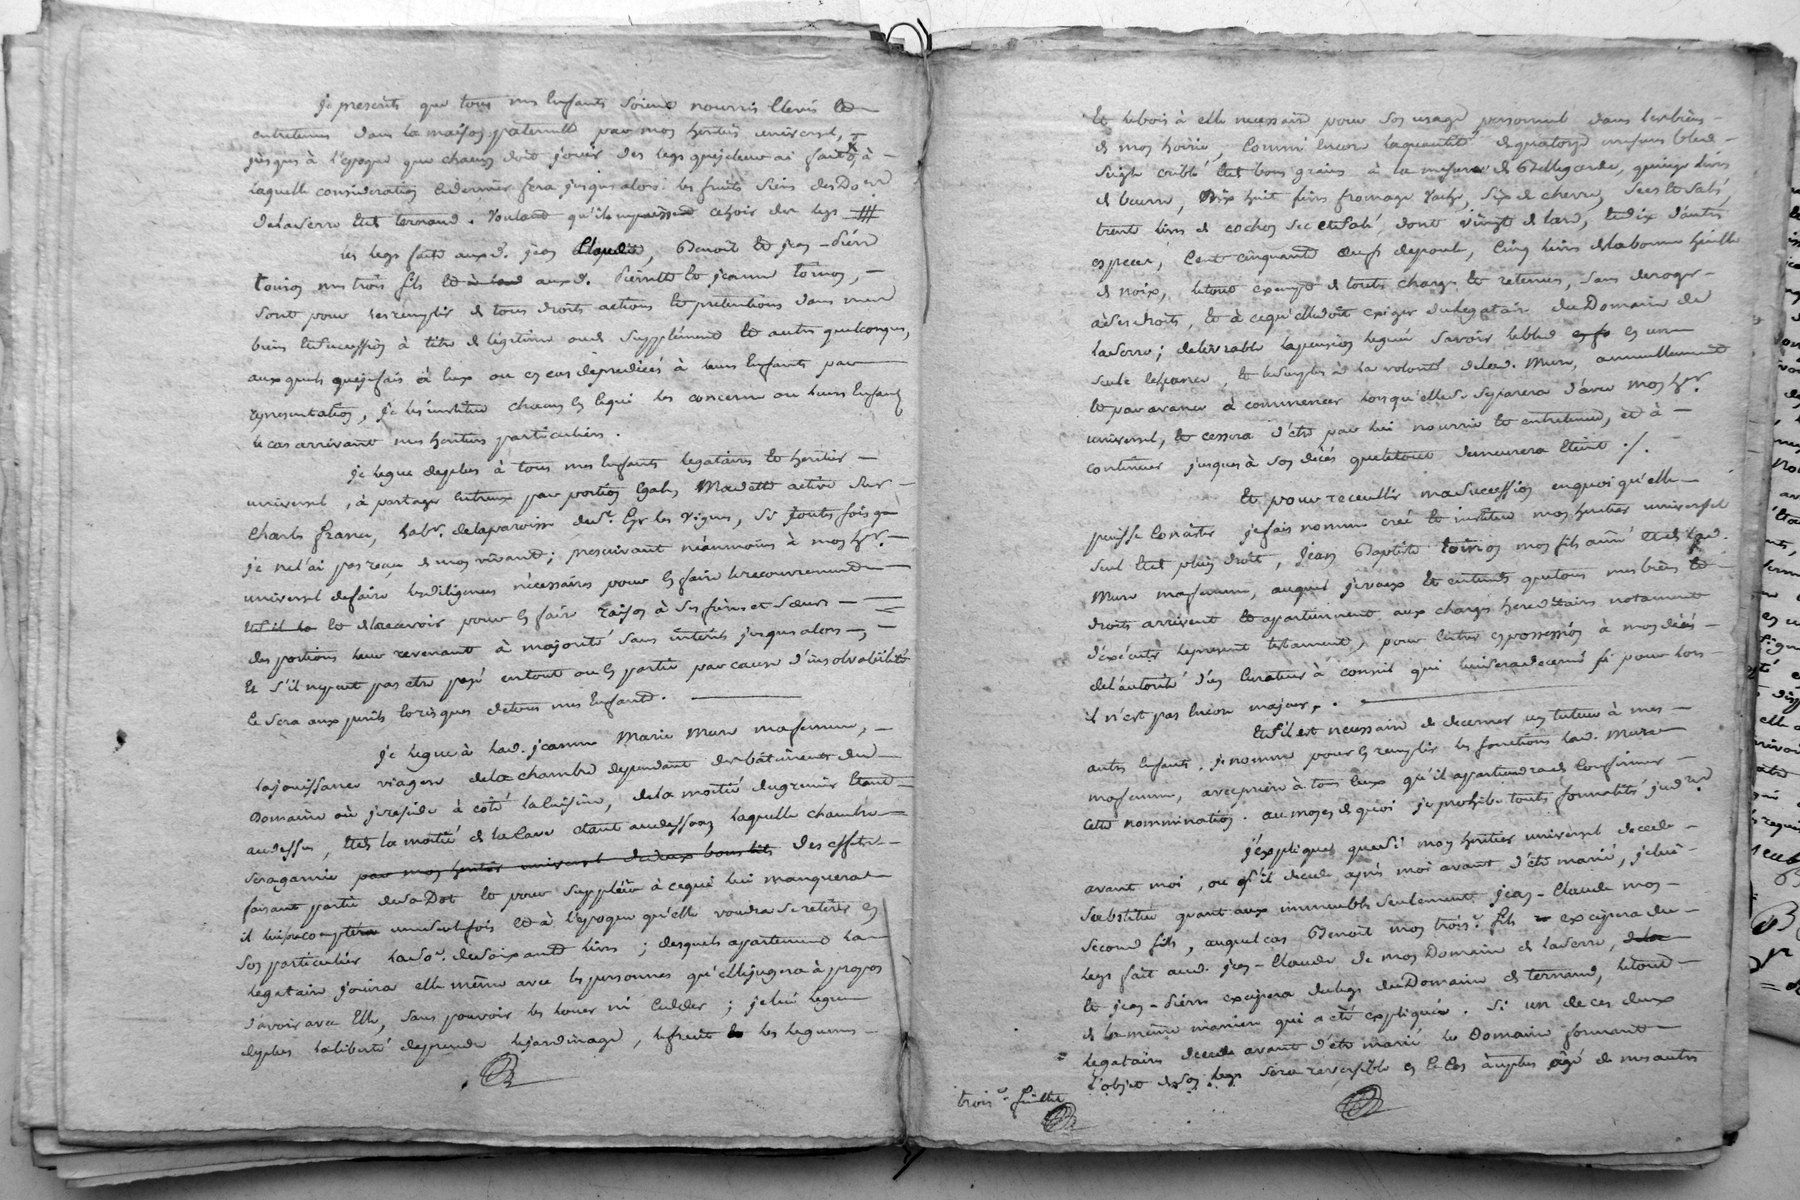 je prescrits que tous mes Enfants soient nourris Elevés Et
entretenus dans la maison paternelle par mon heritier universel,
jusques à l'epoque que chacun doit jouir des legs quejeleur ai faits, à
laquelle consideration cedernier fera jusques alors les fruits siens des
delaserre Etde ternand. Voulant qu'il
les legs faits auxd. jean Claude, Benoit Et jean-Pierre
toinon mes trois fils Et auxd. Pierrette Et jeanne toinon,
sont pour les remplir de tous droits actions Et pretentions dans mes
biens Etsuccession à titre de legitime ou de supplément Et autres quelconques,
auxquels quejefais à Eux ou en cas de prédécés à leurs Enfants par
representation, je les institue chacun En cequi les concerne ou leurs Enfants
le cas arrivant mes heritiers particuliers.
je legue deplus à tous mes Enfants legataires Et heritier
universel, à partager entreux par portion Egales Madette active sur
Charles france, habt. delaparoisse de St. Cyr les Vignes, si toutefois que
je ne l'ai pas reçue de mon vivant; prescrivant néanmoins à mon her.
universel defaire lesdiligences nécessaires pour En faire lerecouvrement
Et de larecevoir pour En faire raison à ses freres et soeurs
des portions leur revenant à majorité sans interets jusques alors,
Et s'il nepeut pas etre payé entout ou En partie par cause d'insolvabilité
ce sera aux perils Et risques detous mes Enfants.
je legue à lad. jeanne Marie Mure mafemme,
lajouissance viagere dela chambre dependant des bâtiments du
Domaine où jereside à côté lacuisine, dela moitié dugrenier Etant
audessus, Etde la moitié de la Cave Etant audessous laquelle chambre
seragarnie par mon heritier universel dedeux bons lits des effets
faisant partie desa Dot Et pour suppléer à cequi lui manquera
il luipacomptera uneseulefois Et à l'epoque qu'elle voudra seretirer En
son particulier laso. desoixante livres; desquels appartement la
legataire jouira elle même avec lespersonnes qu'ellejugera à propos
d'avoir avec Elle, sans pouvoir les louer ni Ceder; jelui legue
deplus laliberté deprendre lejardinage, lefruit Et les legumes
Et lebois à elle necessaire pour son usage personnel dans lesbiens
de mon hoirie, Comme Encore laquantité dequatorze mesures bled
seigle criblé Etde bons grains à la mesure de Bellegarde, quinze livres
de beurre, Dix huit fromage vache, six de chevre, secs Et salé
trente livres de cochon sec Etsalé, dont vingt de lard, Etdix d'autre
espece, Cent cinquante oeufs depoule, Cinq livres delabonne huille
de noix, letout exempt de toutes charges Et retenues, sans deroger
àses droits, Et à cequ'elledoit exiger dulegataire duDomaine de
laserre; delivrable lapension leguée savoir lebled En une
seule Echeance, Et lesurplus à la volonté delad. Mure, annuellement
Et par avance à commencer lorsqu'ellese separera d'avec mon her.
universel, Et cessera d'etre par lui nourrie Et entretenue, Et à
continuer jusques à son décés queletout demeurera Eteint ./.
Et pour recueillir masuccession enquoi qu'elle
puisse Consister jefais nomme créé Et institue mon heritier universel
seul Etde plein droit, Jean Baptiste toinon mon fils ainé Etde lad.
Mure mafemme, auquel jeveux Et entends quetous mes biens Et
droits arrivent Et appartiennent aux charges hereditaires notament
d'éxécuter lepresent testament, pour entrer enpossession à mon décés
del'autorité d'un Curateur à conseil qui luiseradecerné si pour lors
il n'est pas Encore majeur.
Ets'il est necessaire de decerner un tuteur à mes
autres Enfants, jenomme pour En remplir les fonctions lad. Mure
mafemme, avecpriere à tous Ceux qu'il appartiendra de Confirmer
cette nommination. au moyen de quoi je prohibe toutes formalités judres
j'explique que si mon heritier universel decede
avant moi, ou s'il decede aprés moi avant d'etre marié, jelui
substitue quant aux immeubles seulement jean-Claude mon
second fils, auquel cas Benoit mon trois.e fils excipera du
legs fait aud. jean-Claude de mon Domaine de laserre,
Et jean-Pierre excipera dulegs duDomaine de ternand, letout
de la même maniere qui a eté expliquée. Si un de ces deux
legataires decede avant d'etre marié le Domaine formant
l'objet deson legs sera reversible En Ce Cas auplus âgé de mes autres
trois.e feuillet